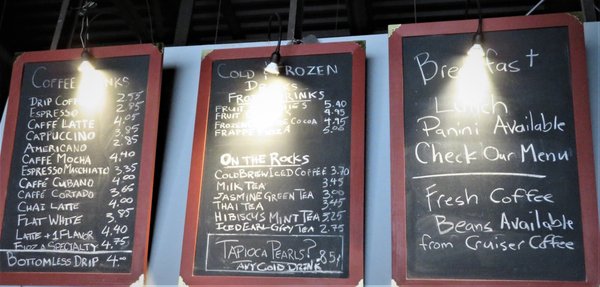 Coffee Drinks
Drip Coffee 2.55
Espresso 2.85
Caffe Latte 4.05
Cappuccino 3.85
Americano 2.85
Caffe Mocha 4.40
Espresso Macchiato 3.35
Caffe Cubano 4.00
Caffe Cortado 3.65
Chai Latte 4.00
Flat White 3.85
Latte + 1 Flavor 4.40
Specialty 4.75
Bottomless Drip 4.00
Cold & Frozen
Drinks
Frozen Drinks
Fruit 5.40
Fruit 4.95
Frozen Cocoa 4.95
Frappe
On the Rocks
Cold Brew Iced Coffee 3.70
Milk Tea 3.45
Jasmine Green Tea 3.00
Thai Tea 3.45
Hibiscus Mint Tea 3.25
Iced Earl Grey Tea 2.75
Tapioca Pearls? 85¢
Any Cold Drink
Breakfast
Lunch
Panini Available
Check Our Menu
Fresh Coffee
Beans Available
from Cruiser Coffee